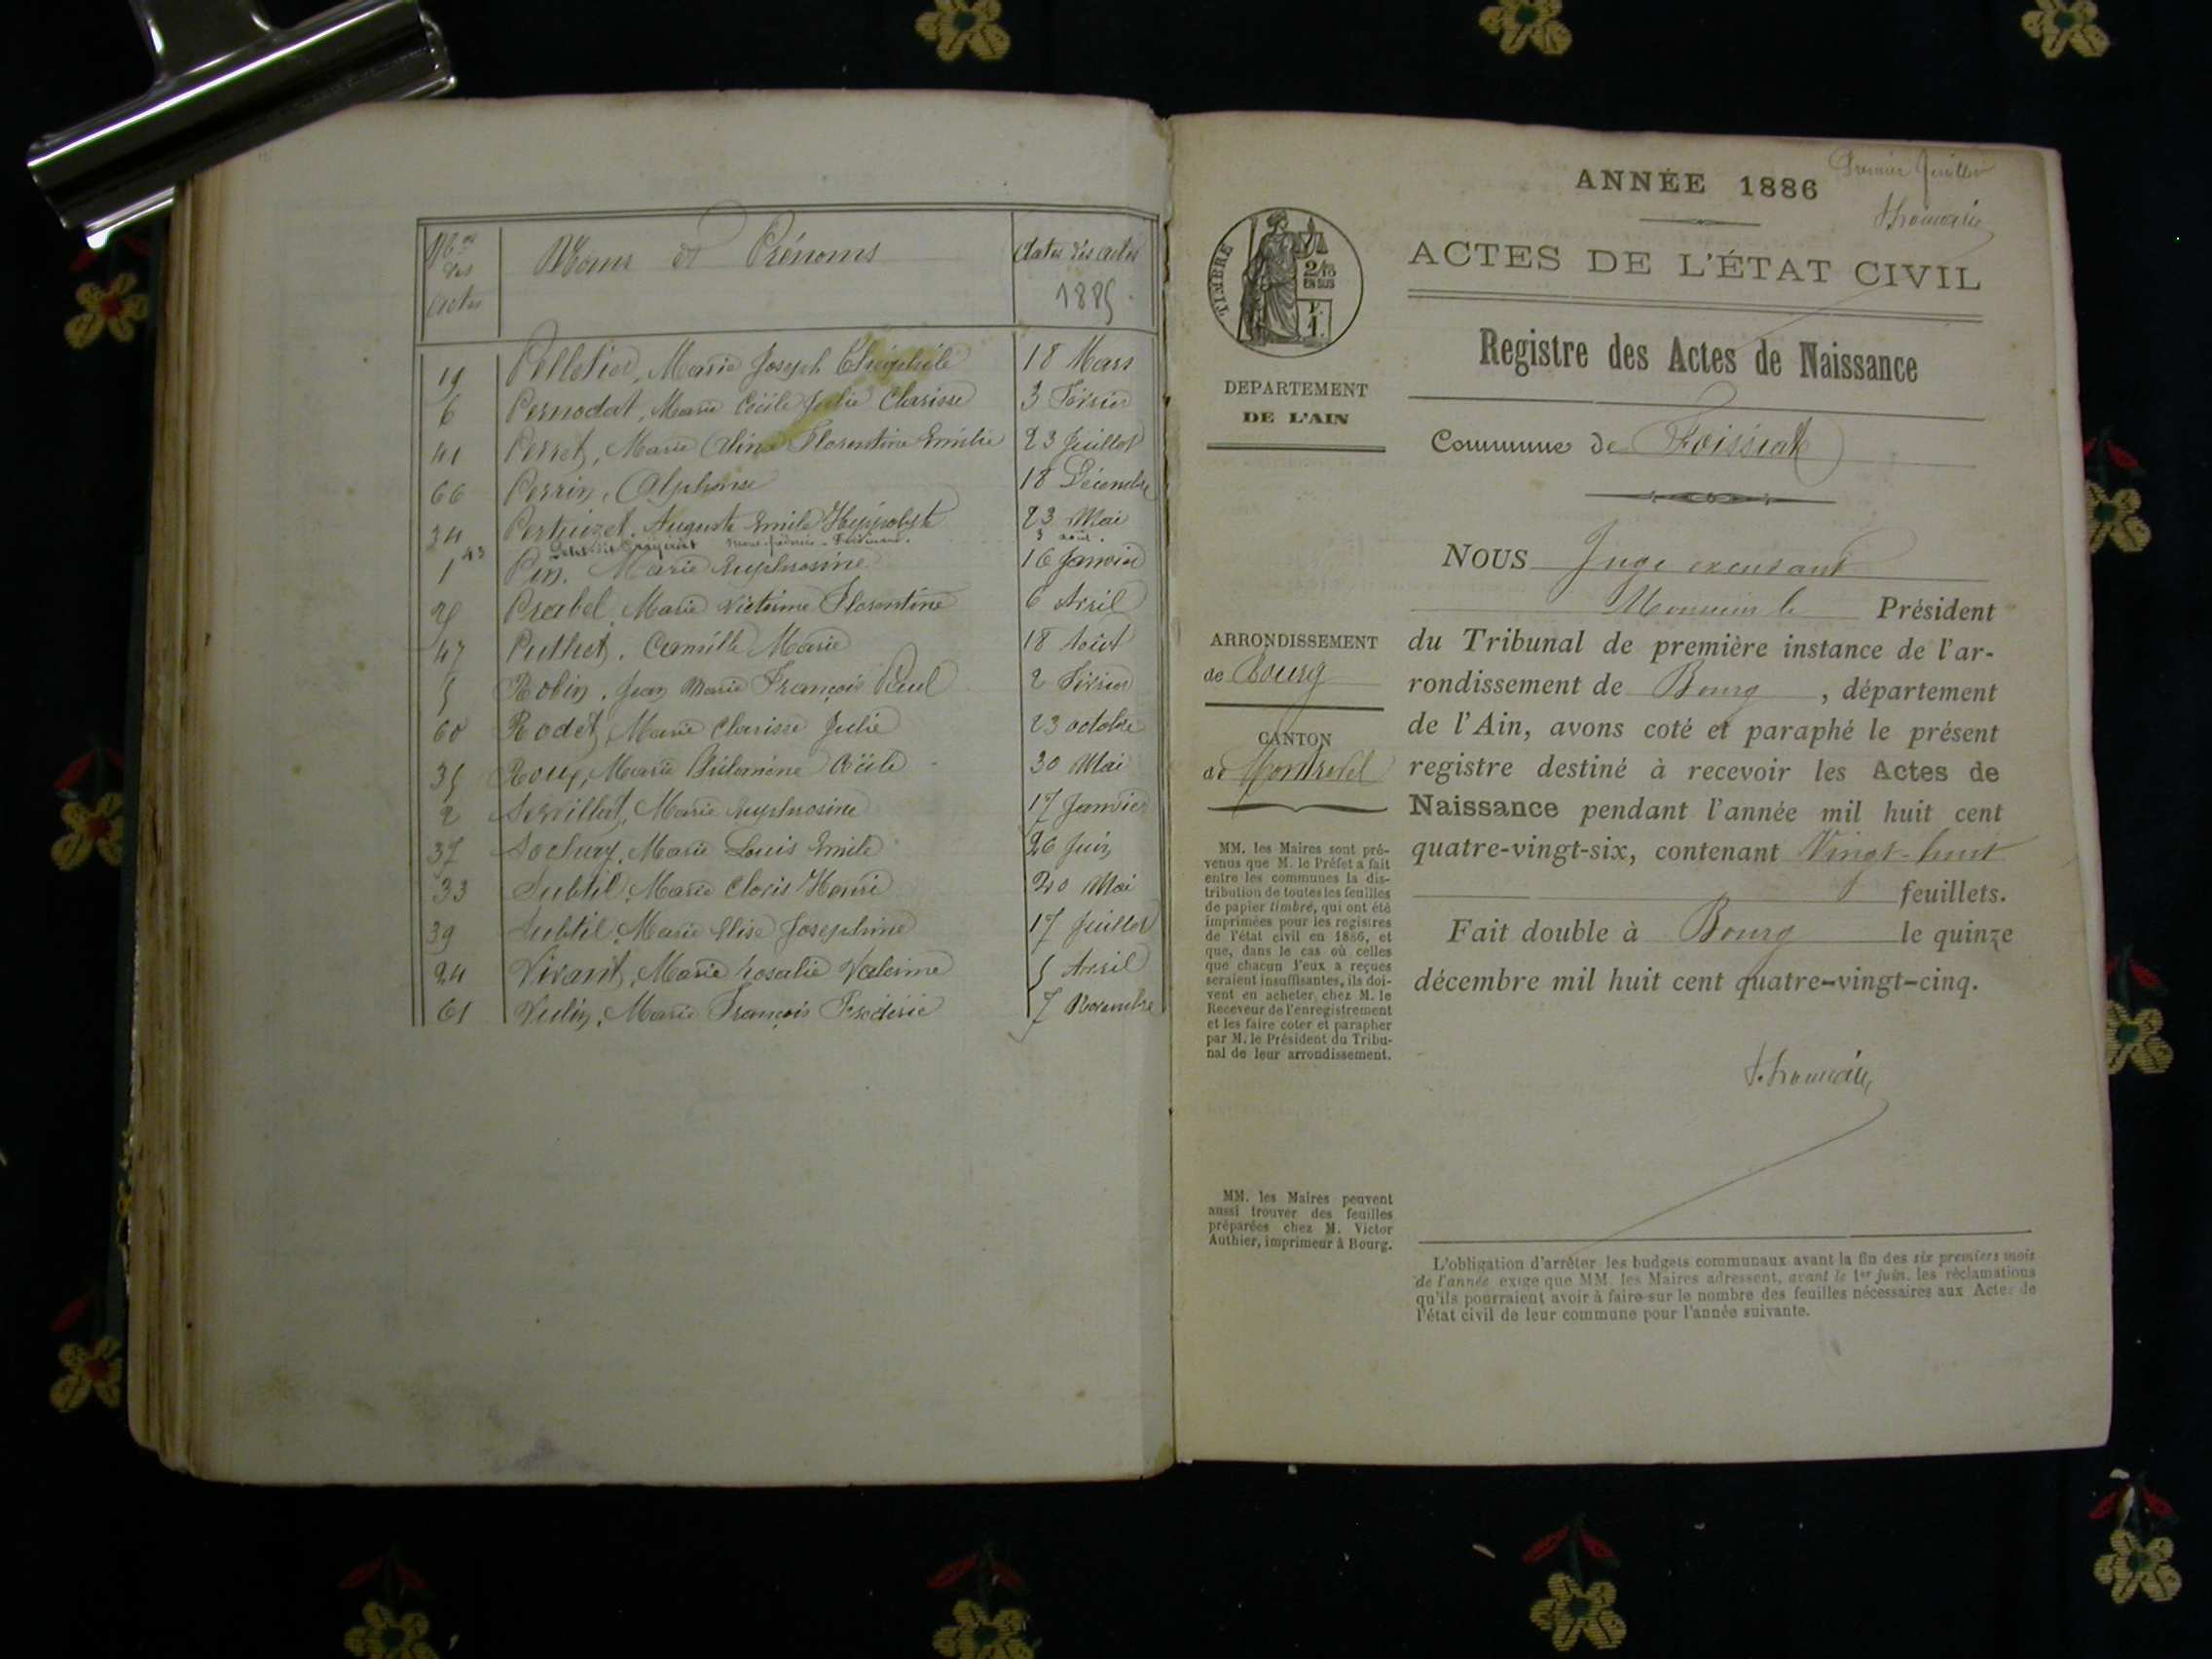 Nos des Actes
Noms et Prénoms
dates des actes
1885
19 Pelletier, Marie Joseph Théophile 18 Mars
6 Pernodat, Marie Cécile Julie Clarisse 3 Février
41 Perret, Marie Céline Florentine Emélie 23 Juillet
66 Perrin, Alphonse 18 Décembre
34 Pertuizet, Auguste Emile Hyppolyte 23 Mai
43 3 août.
1 Pin, Marie Euphrosine 16 Janvier
Prabel, Marie Victorine Florentine 6 Avril
47 Puthet, Camille Marie 18 Août
5 Robin, Jean Marie François Paul 2 Février
60 Rodet, Marie Clarisse Julie 23 octobre
35 Roux, Marie Philomène Cécile 30 Mai
2 Servillat, Marie Euphrosine 17 Janvier
37 Sochay, Marie Louis Emile 26 Juin
33 Subtil, Marie Cloris Henri 20 Mai
39 Subtil, Marie Elise Josephine 17 Juillet
24 Vivant, Marie Rosalie 5 Avril
61 Vulin, Marie François Frédéric 7 Novembre
Premier feuillet
ANNÉE 1886
ACTES DE L'ÉTAT CIVIL
TIMBRE
2/10
EN SUS
Registre des Actes de Naissance
DEPARTEMENT
DE L'AIN
Commune de Foissiat
NOUS Juge
Monsieur le Président
ARRONDISSEMENT
de Bourg
CANTON
de Montrevel
du Tribunal de première instance de l'ar-
rondissement de Bourg, département
de l'Ain, avons coté et paraphé le présent
registre destiné à recevoir les Actes de
Naissance pendant l'année mil huit cent
quatre-vingt-six, contenant Vingt-huit
feuillets.
Fait double à Bourg le quinze
décembre mil huit cent quatre-vingt-cinq.
MM. les Maires sont pré-
venus que M. le Préfet a fait
entre les communes la dis-
tribution de toutes les feuilles
de papier timbré, qui ont été
imprimées pour les registres
de l'état civil en 1886, et
que, dans le cas où celles
que chacun d'eux a reçues
seraient insuffisantes, ils doi-
vent en acheter chez M. le
Receveur de l'enregistrement
et les faire coter et parapher
par M. le Président du Tribu-
nal de leur arrondissement.
MM. les Maires peuvent
aussi trouver des feuilles
préparées chez M. Victor
Authier, imprimeur à Bourg.
L'obligation d'arrêter les budgets communaux avant la fin des six premiers mois
de l'année exige que MM. les Maires adressent, avant le 1er juin, les réclamations
qu'ils pourraient avoir à faire sur le nombre des feuilles nécessaires aux Actes de
l'état civil de leur commune pour l'année suivante.